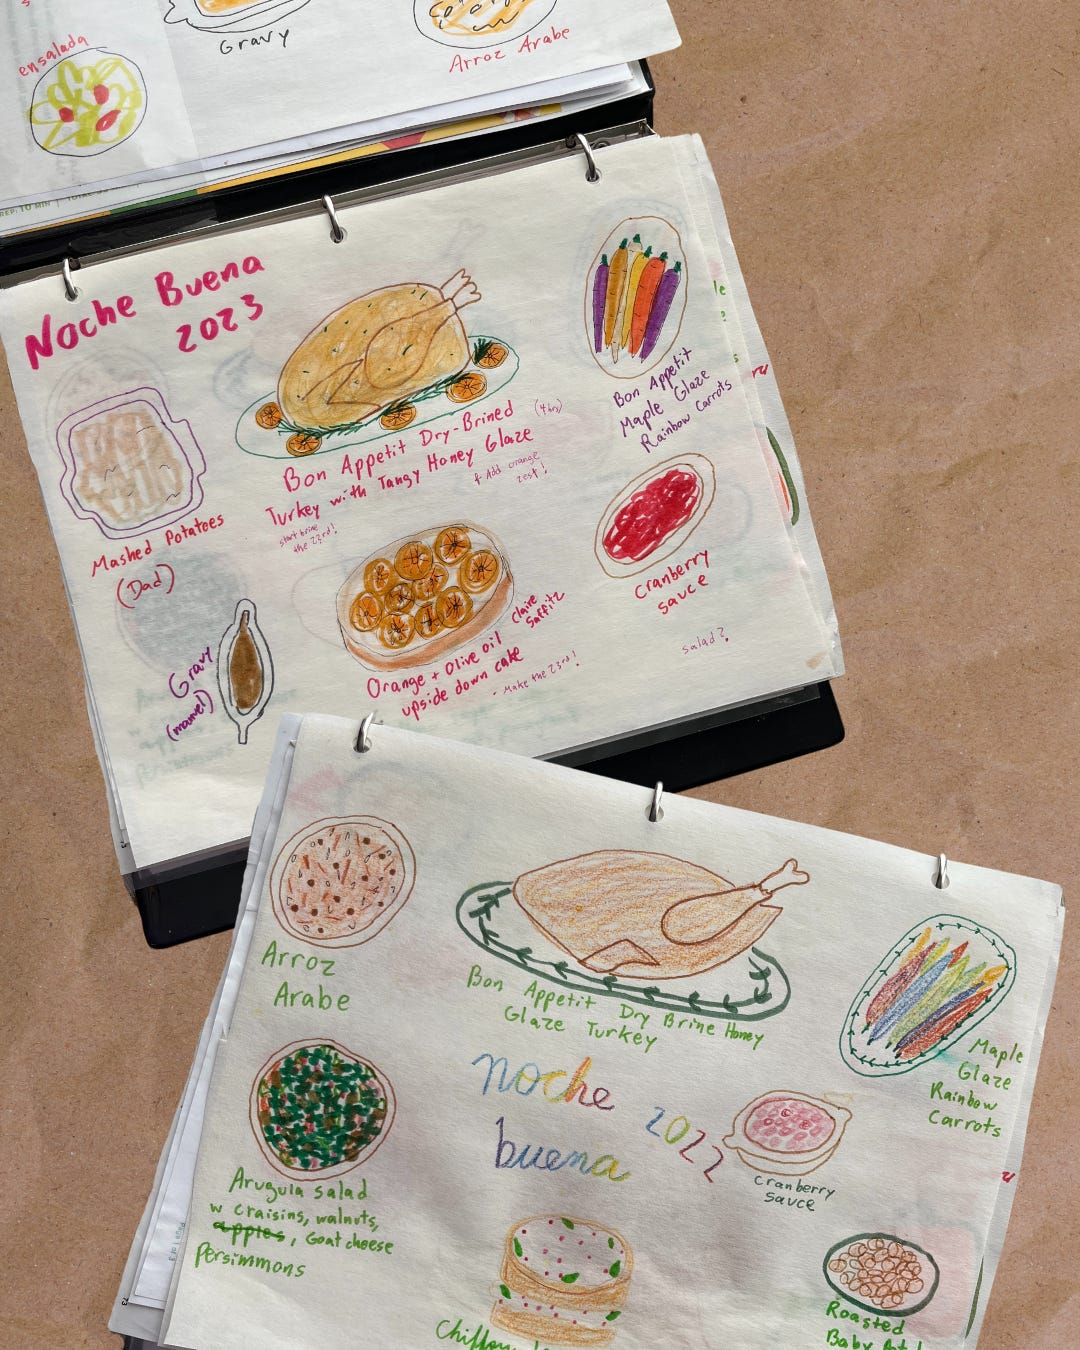 ensalada
Gravy
Arroz Arabe
Noche Buena
2023
Mashed Potatoes
(Dad)
Gravy
(mamel)
Bon Appetit Dry-Brined (4 hrs)
Turkey with Tangy Honey Glaze
+ Add orange
zest!
start brine
the 23rd!
Orange + Olive oil
upside down cake
Claire
Saffitz
- Make the 23rd!
Bon Appetit
Maple Glaze
Rainbow Carrots
Cranberry
sauce
salad?
Arroz
Arabe
Bon Appetit Dry Brine Honey
Glaze Turkey
Maple
Glaze
Rainbow
Carrots
noche
buena
2022
Cranberry
sauce
Arugula salad
w craisins, walnuts,
apples, Goat cheese
Persimmons
Chiffon
Roasted
Baby